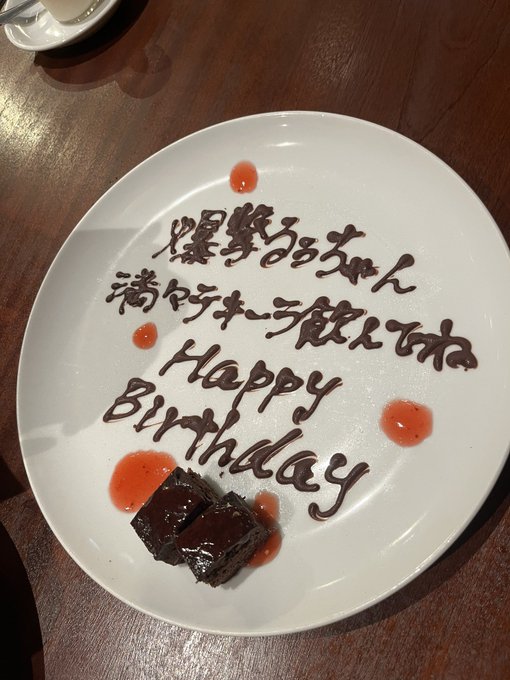 爆撃るぅちゃん
満々テキーラ飲んでね
Happy
Birthday